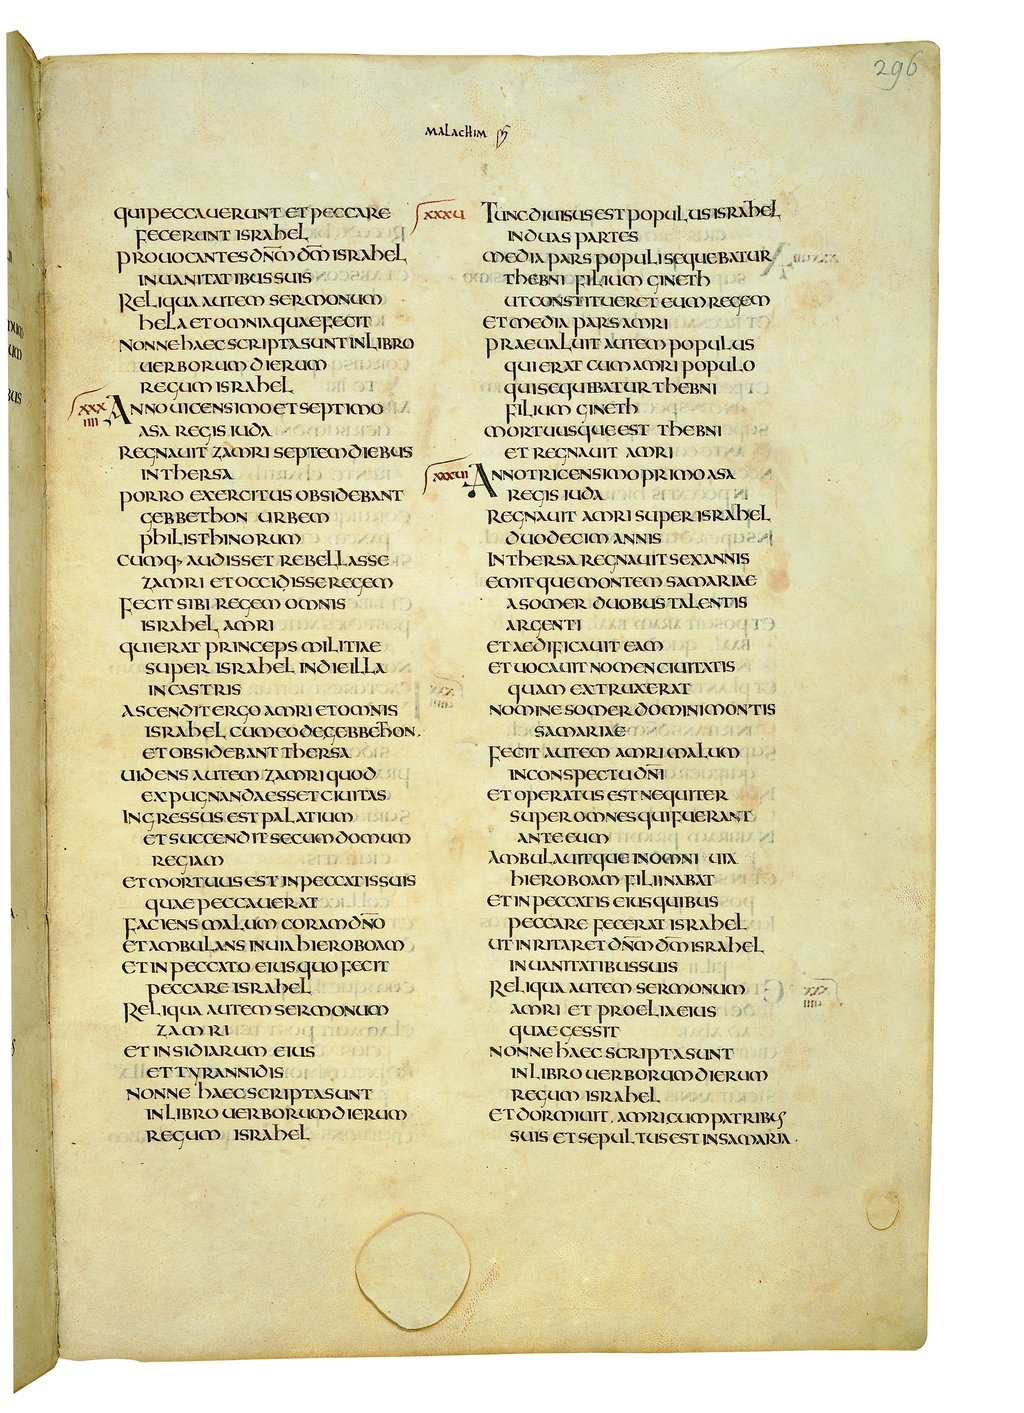 296
MALACHIM
QUI PECCAVERUNT ET PECCARE
FECERUNT ISRAHEL
PROVOCANTES DN̅M DM̅ ISRAHEL
IN VANITATIBUS SUIS
RELIQUA AUTEM SERMONUM
HELA ET OMNIA QUAE FECIT
NONNE HAEC SCRIPTA SUNT IN LIBRO
UERBORUM DIERUM
REGUM ISRAHEL
XXXIIII ANNO UICENSIMO ET SEPTIMO
ASA REGIS IUDA
REGNAUIT ZAMRI SEPTEM DIEBUS
IN THERSA
PORRO EXERCITUS OBSIDEBANT
GEBBETHON URBEM
PHILISTHINORUM
CUMQ· AUDISSET REBELLASSE
ZAMRI ET OCCIDISSE REGEM
FECIT SIBI REGEM OMNIS
ISRAHEL AMRI
QUI ERAT PRINCEPS MILITIAE
SUPER ISRAHEL IN DIE ILLA
IN CASTRIS
ASCENDIT ERGO AMRI ET OMNIS
ISRAHEL CUM EO DE GEBBETHON.
ET OBSIDEBANT THERSA
UIDENS AUTEM ZAMRI QUOD
EXPUGNANDA ESSET CIUITAS
INGRESSUS EST PALATIUM
ET SUCCENDIT SECUM DOMUM
REGIAM
ET MORTUUS EST IN PECCATIS SUIS
QUAE PECCAUERAT
FACIENS MALUM CORAM DN̅O
ET AMBULANS IN UIA HIEROBOAM
ET IN PECCATO EIUS QUO FECIT
PECCARE ISRAHEL
RELIQUA AUTEM SERMONUM
ZAMRI
ET INSIDIARUM EIUS
ET TYRANNIDIS
NONNE HAEC SCRIPTA SUNT
IN LIBRO UERBORUM DIERUM
REGUM ISRAHEL
XXXU TUNC DIUISUS EST POPULUS ISRAHEL
IN DUAS PARTES
MEDIA PARS POPULI SEQUEBATUR
THEBNI FILIUM GINETH
UT CONSTITUERET EUM REGEM
ET MEDIA PARS AMRI
PRAEUALUIT AUTEM POPULUS
QUI ERAT CUM AMRI POPULO
QUI SEQUIBATUR THEBNI
FILIUM GINETH
MORTUUSQUE EST THEBNI
ET REGNAUIT AMRI
XXXUI ANNO TRICENSIMO PRIMO ASA
REGIS IUDA
REGNAUIT AMRI SUPER ISRAHEL
DUODECIM ANNIS
IN THERSA REGNAUIT SEX ANNIS
EMITQUE MONTEM SAMARIAE
A SOMER DUOBUS TALENTIS
ARGENTI
ET AEDIFICAUIT EAM
ET UOCAUIT NOMEN CIUITATIS
QUAM EXTRUXERAT
NOMINE SOMER DOMINI MONTIS
SAMARIAE
FECIT AUTEM AMRI MALUM
IN CONSPECTU DN̅I
ET OPERATUS EST NEQUITER
SUPER OMNES QUI FUERANT
ANTE EUM
AMBULAUITQUE IN OMNI UIA
HIEROBOAM FILII NABAT
ET IN PECCATIS EIUS QUIBUS
PECCARE FECERAT ISRAHEL
UT INRITARET DN̅M DM̅ ISRAHEL
IN UANITATIBUS SUIS
RELIQUA AUTEM SERMONUM
AMRI ET PROELIA EIUS
QUAE GESSIT
NONNE HAEC SCRIPTA SUNT
IN LIBRO UERBORUM DIERUM
REGUM ISRAHEL
ET DORMIUIT AMRI CUM PATRIBUS
SUIS ET SEPULTUS EST IN SAMARIA.